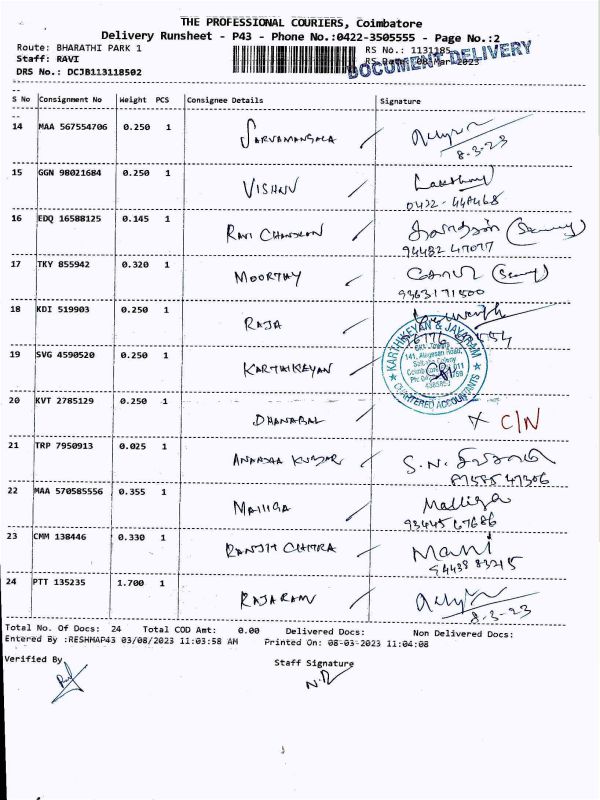 THE PROFESSIONAL COURIERS, Coimbatore
Delivery Runsheet - P43 - Phone No.:0422-3505555 - Page No.:2
Route: BHARATHI PARK 1 RS No.: 1131185
Staff: RAVI RS Date: 08-Mar-2023
DOCUMENT DELIVERY
DRS No.: DCJB113118502
S No Consignment No Weight PCS Consignee Details Signature
14 MAA 567554706 0.250 1 SARVAMANGALA
8-3-23
15 GGN 98021684 0.250 1 VISHNU
0422-
16 EDQ 16588125 0.145 1 RAVI CHANDRAN
94482 47077
17 TKY 855942 0.320 1 MOORTHY
93631 71500
18 KDI 519903 0.250 1 RAJA
19 SVG 4590520 0.250 1 KARTHIKEYAN
KARTHIKEYAN & JAYARAM
141, Alagesan Road,
CHARTERED ACCOUNTANTS
20 KVT 2785129 0.250 1 DHANABAL X C/N
21 TRP 7950913 0.025 1 KUMAR S.N.
22 MAA 570585556 0.355 1 MALLIGA Malliga
93445 67686
23 CMM 138446 0.330 1 RANJITH CHITRA Mani
94438 83215
24 PTT 135235 1.700 1 RAJARAM
8-3-23
Total No. Of Docs: 24 Total COD Amt: 0.00 Delivered Docs: Non Delivered Docs:
Entered By :RESHMAP43 03/08/2023 11:03:58 AM Printed On: 08-03-2023 11:04:08
Verified By Staff Signature